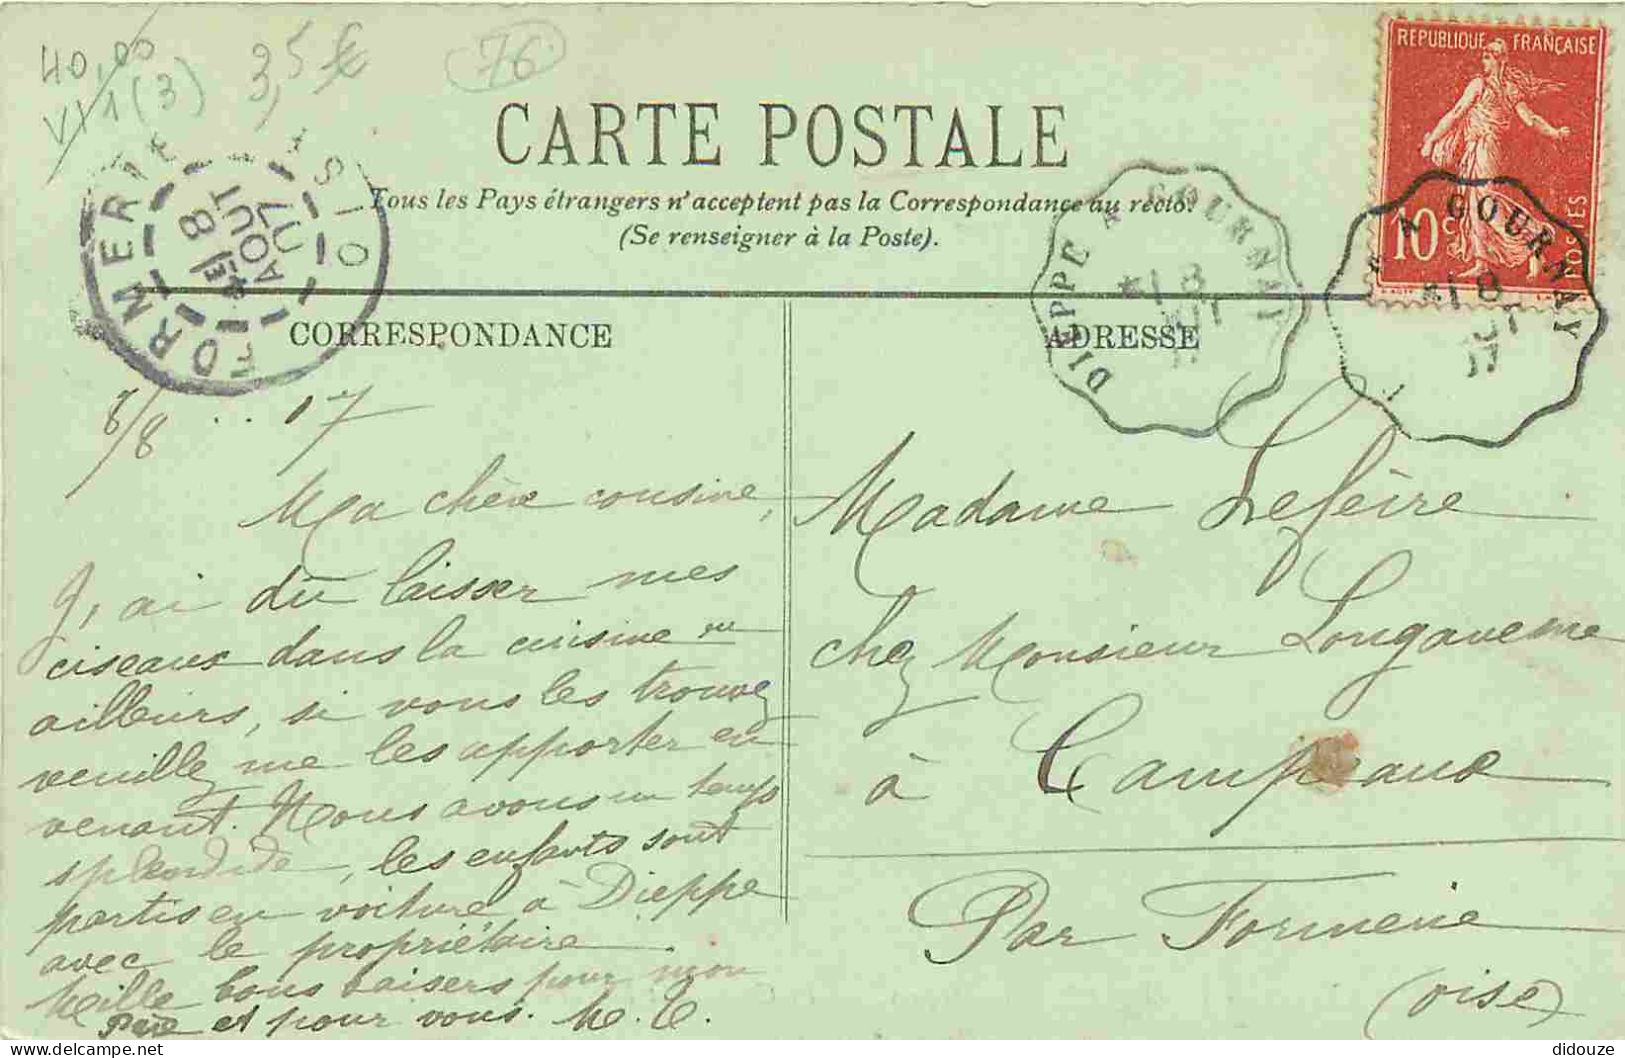 40,00
VI 1 (3)
3,5 €
76
CARTE POSTALE
Tous les Pays étrangers n'acceptent pas la Correspondance au recto.
(Se renseigner à la Poste).
REPUBLIQUE FRANÇAISE
10 c
POSTES
FORMERIE OISE
8 AOUT 07
DIEPPE A GOURNAY
*1 8
A GOURNAY
*1 8
CORRESPONDANCE
ADRESSE
8/8 .. 17
Ma chère cousine,
J,ai dû laisser mes
ciseaux dans la cuisine ou
ailleurs, si vous les trouvez
veuillez me les apporter en
venant. Nous avons un temps
splendide, les enfants sont
partis en voiture à Dieppe
avec le propriétaire.
Mille bons baisers pour mon
Père et pour vous. M. T.
Madame Lefèvre
chez Monsieur Longavesne
à Campeaux
Par Formerie
(oise)
didouze